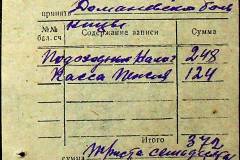 принято Домановской боль
ницы
№№ бал. сч. Содержание записи Сумма
Подоходный налог 248
Касса Пенсия 124
Итого 372
Сумма Триста семьдесят